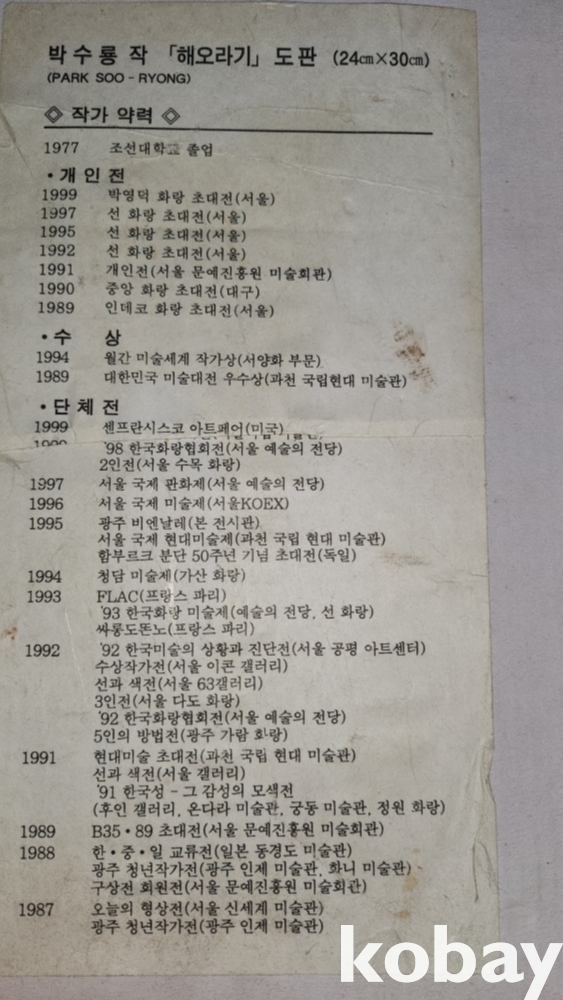 박수룡 작 「해오라기」 도판 (24㎝×30㎝)
(PARK SOO - RYONG)
◇ 작가 약력 ◇
1977 조선대학교 졸업
• 개 인 전
1999 박영덕 화랑 초대전(서울)
1997 선 화랑 초대전(서울)
1995 선 화랑 초대전(서울)
1992 선 화랑 초대전(서울)
1991 개인전(서울 문예진흥원 미술회관)
1990 중앙 화랑 초대전(대구)
1989 인데코 화랑 초대전(서울)
• 수 상
1994 월간 미술세계 작가상(서양화 부문)
1989 대한민국 미술대전 우수상(과천 국립현대 미술관)
• 단 체 전
1999 센프란시스코 아트페어(미국)
'98 한국화랑협회전(서울 예술의 전당)
2인전(서울 수목 화랑)
1997 서울 국제 판화제(서울 예술의 전당)
1996 서울 국제 미술제(서울KOEX)
1995 광주 비엔날레(본 전시관)
서울 국제 현대미술제(과천 국립 현대 미술관)
함부르크 분단 50주년 기념 초대전(독일)
1994 청담 미술제(가산 화랑)
1993 FLAC(프랑스 파리)
'93 한국화랑 미술제(예술의 전당, 선 화랑)
싸롱도똔노(프랑스 파리)
1992 '92 한국미술의 상황과 진단전(서울 공평 아트센터)
수상작가전(서울 이콘 갤러리)
선과 색전(서울 63갤러리)
3인전(서울 다도 화랑)
'92 한국화랑협회전(서울 예술의 전당)
5인의 방법전(광주 가람 화랑)
1991 현대미술 초대전(과천 국립 현대 미술관)
선과 색전(서울 갤러리)
'91 한국성 - 그 감성의 모색전
(후인 갤러리, 온다라 미술관, 궁동 미술관, 정원 화랑)
1989 B35 • 89 초대전(서울 문예진흥원 미술회관)
1988 한 • 중 • 일 교류전(일본 동경도 미술관)
광주 청년작가전(광주 인제 미술관, 화니 미술관)
구상전 회원전(서울 문예진흥원 미술회관)
1987 오늘의 형상전(서울 신세계 미술관)
광주 청년작가전(광주 인제 미술관)
kobay